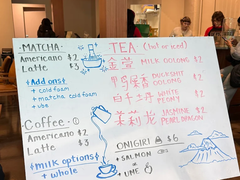 ·MATCHA·
Americano $2
Latte $3
+Add ons+
+ cold foam
+ matcha cold foam
+ ube
·Coffee·
Americano $2
Latte $3
+milk options+
+ whole
TEA (hot or iced)
MILK OOLONG $2
鸭屎香 DUCKSHIT OOLONG $2
白牡丹 WHITE PEONY $2
茉莉 JASMINE PEARL DRAGON $2
ONIGIRI $6
+ SALMON
+ UME